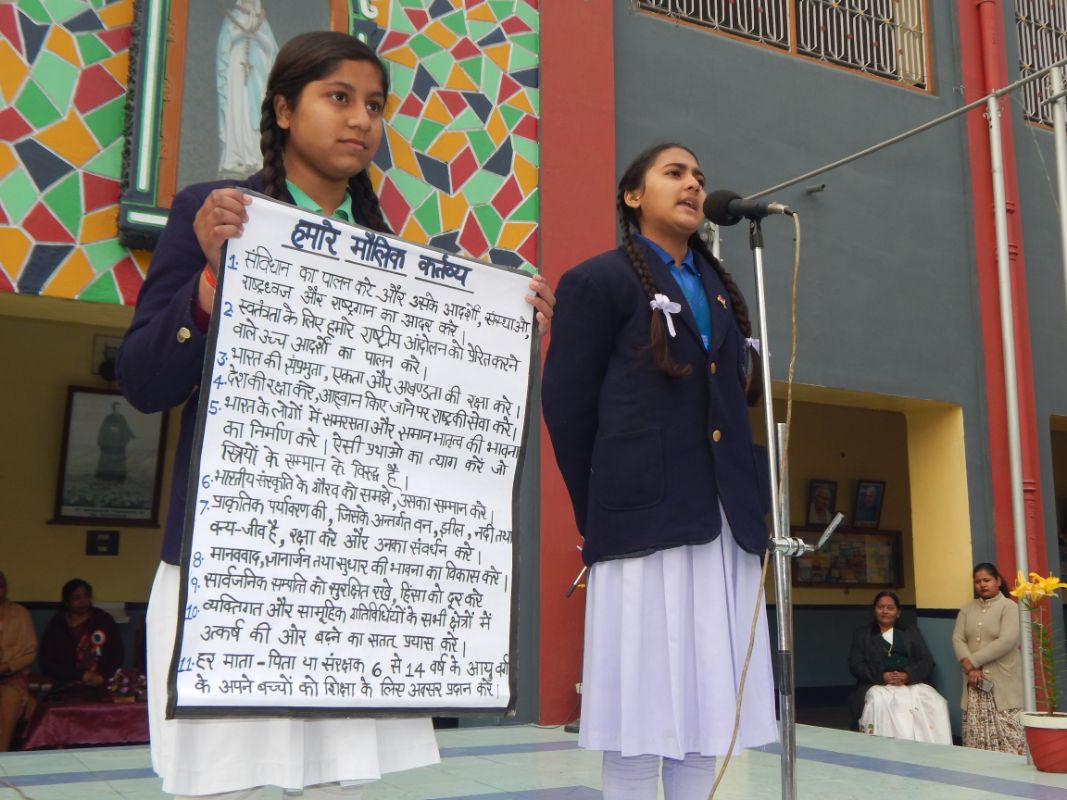 हमारे मौलिक कर्तव्य
1. संविधान का पालन करे और उसके आदर्शो, संस्थाओ,
राष्ट्रध्वज और राष्ट्रगान का आदर करे।
2. स्वतंत्रता के लिए हमारे राष्ट्रीय आंदोलन को प्रेरित करने
वाले उच्च आदर्शो का पालन करे।
3. भारत की संप्रभुता, एकता और अखण्डता की रक्षा करे।
4. देश की रक्षा करे, आह्वान किए जाने पर राष्ट्र की सेवा करे।
5. भारत के लोगों में समरसता और समान भातृत्व की भावना
का निर्माण करे। ऐसी प्रथाओ का त्याग करें जो
स्त्रियों के सम्मान के विरुद्ध है।
6. भारतीय संस्कृति के गौरव को समझे, उसका सम्मान करे।
7. प्राकृतिक पर्यावरण की, जिसके अन्तर्गत वन, झील, नदी तथा
वन्य-जीव है, रक्षा करे और उनका संवर्धन करे।
8. मानववाद, ज्ञानार्जन तथा सुधार की भावना का विकास करे।
9. सार्वजनिक सम्पति को सुरक्षित रखे, हिंसा को दूर करे
10. व्यक्तिगत और सामूहिक गतिविधियों के सभी क्षेत्रों में
उत्कर्ष की ओर बढ़ने का सतत् प्रयास करे।
11. हर माता-पिता या संरक्षक 6 से 14 वर्ष के आयु वर्ग
के अपने बच्चों को शिक्षा के लिए अवसर प्रदान करें।